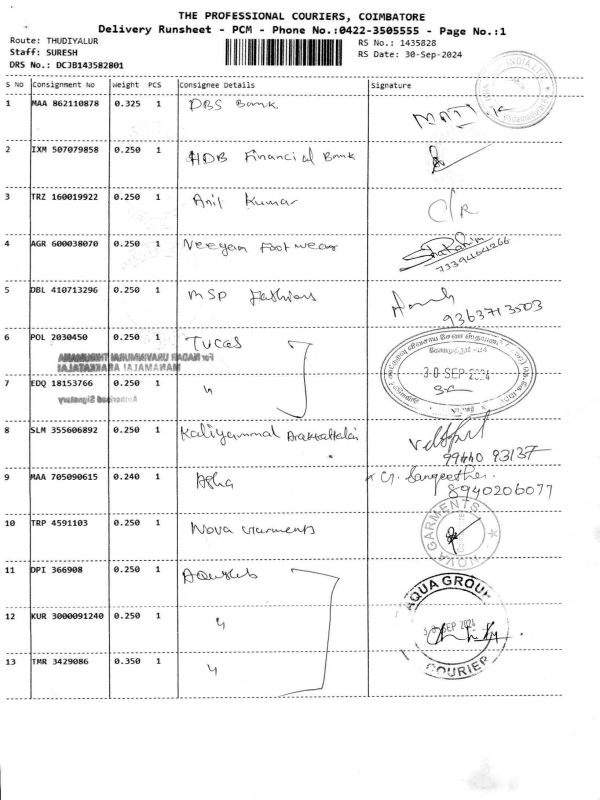 THE PROFESSIONAL COURIERS, COIMBATORE
Delivery Runsheet - PCM - Phone No.:0422-3505555 - Page No.:1
Route: THUDIYALUR
Staff: SURESH
DRS No.: DCJB143582801
RS No.: 1435828
RS Date: 30-Sep-2024
S NO Consignment No Weight PCS Consignee Details Signature
1 MAA 862110878 0.325 1 DBS Bank
2 IXM 507079858 0.250 1 HDB Financial Bank
3 TRZ 160019922 0.250 1 Anil Kumar C/R
4 AGR 600038070 0.250 1 Neeyam Footwear
5 DBL 410713296 0.250 1 MSP Fashions
9363713503
6 POL 2030450 0.250 1 TUCAS
For NADAR URAVINMURAI THIRUMANA
30 SEP 2024
7 EDQ 18153766 0.250 1 〃
Authorised Signatory
8 SLM 355606892 0.250 1 Kaliyammal Arakkattalai
99440 93137
9 MAA 705090615 0.240 1 Asha x G. Sangeetha
8940206077
10 TRP 4591103 0.250 1 Nova Garments
NOVA GARMENTS
11 DPI 366908 0.250 1
AQUA GROUP
12 KUR 3000091240 0.250 1 〃
SEP 2024
13 TMR 3429086 0.350 1 〃
COURIER